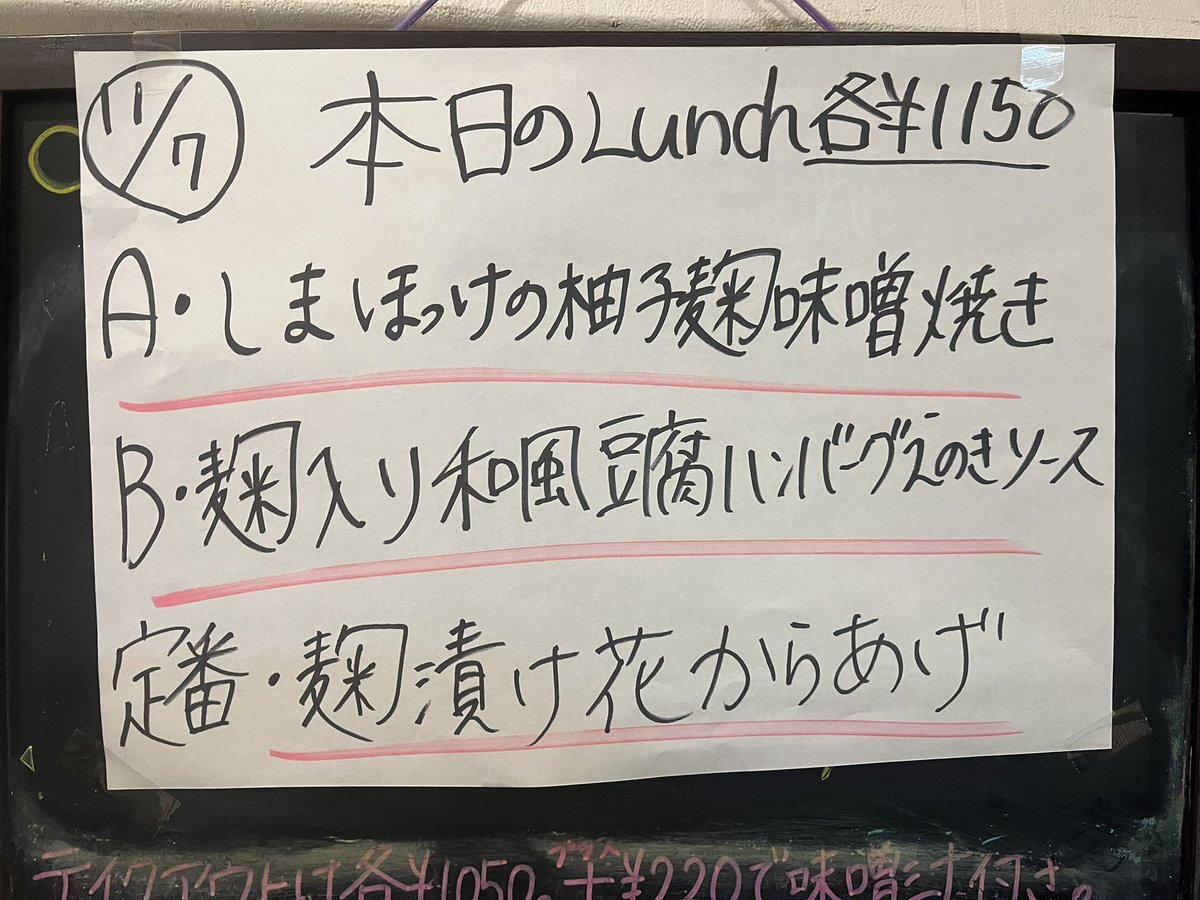 11/7 本日のLunch各¥1150
A・しまほっけの柚子麹味噌焼き
B・麹入り和風豆腐ハンバーグえのきソース
定番・麹漬け花からあげ
プラス
テイクアウトは各¥1050。+¥220で味噌汁付き。